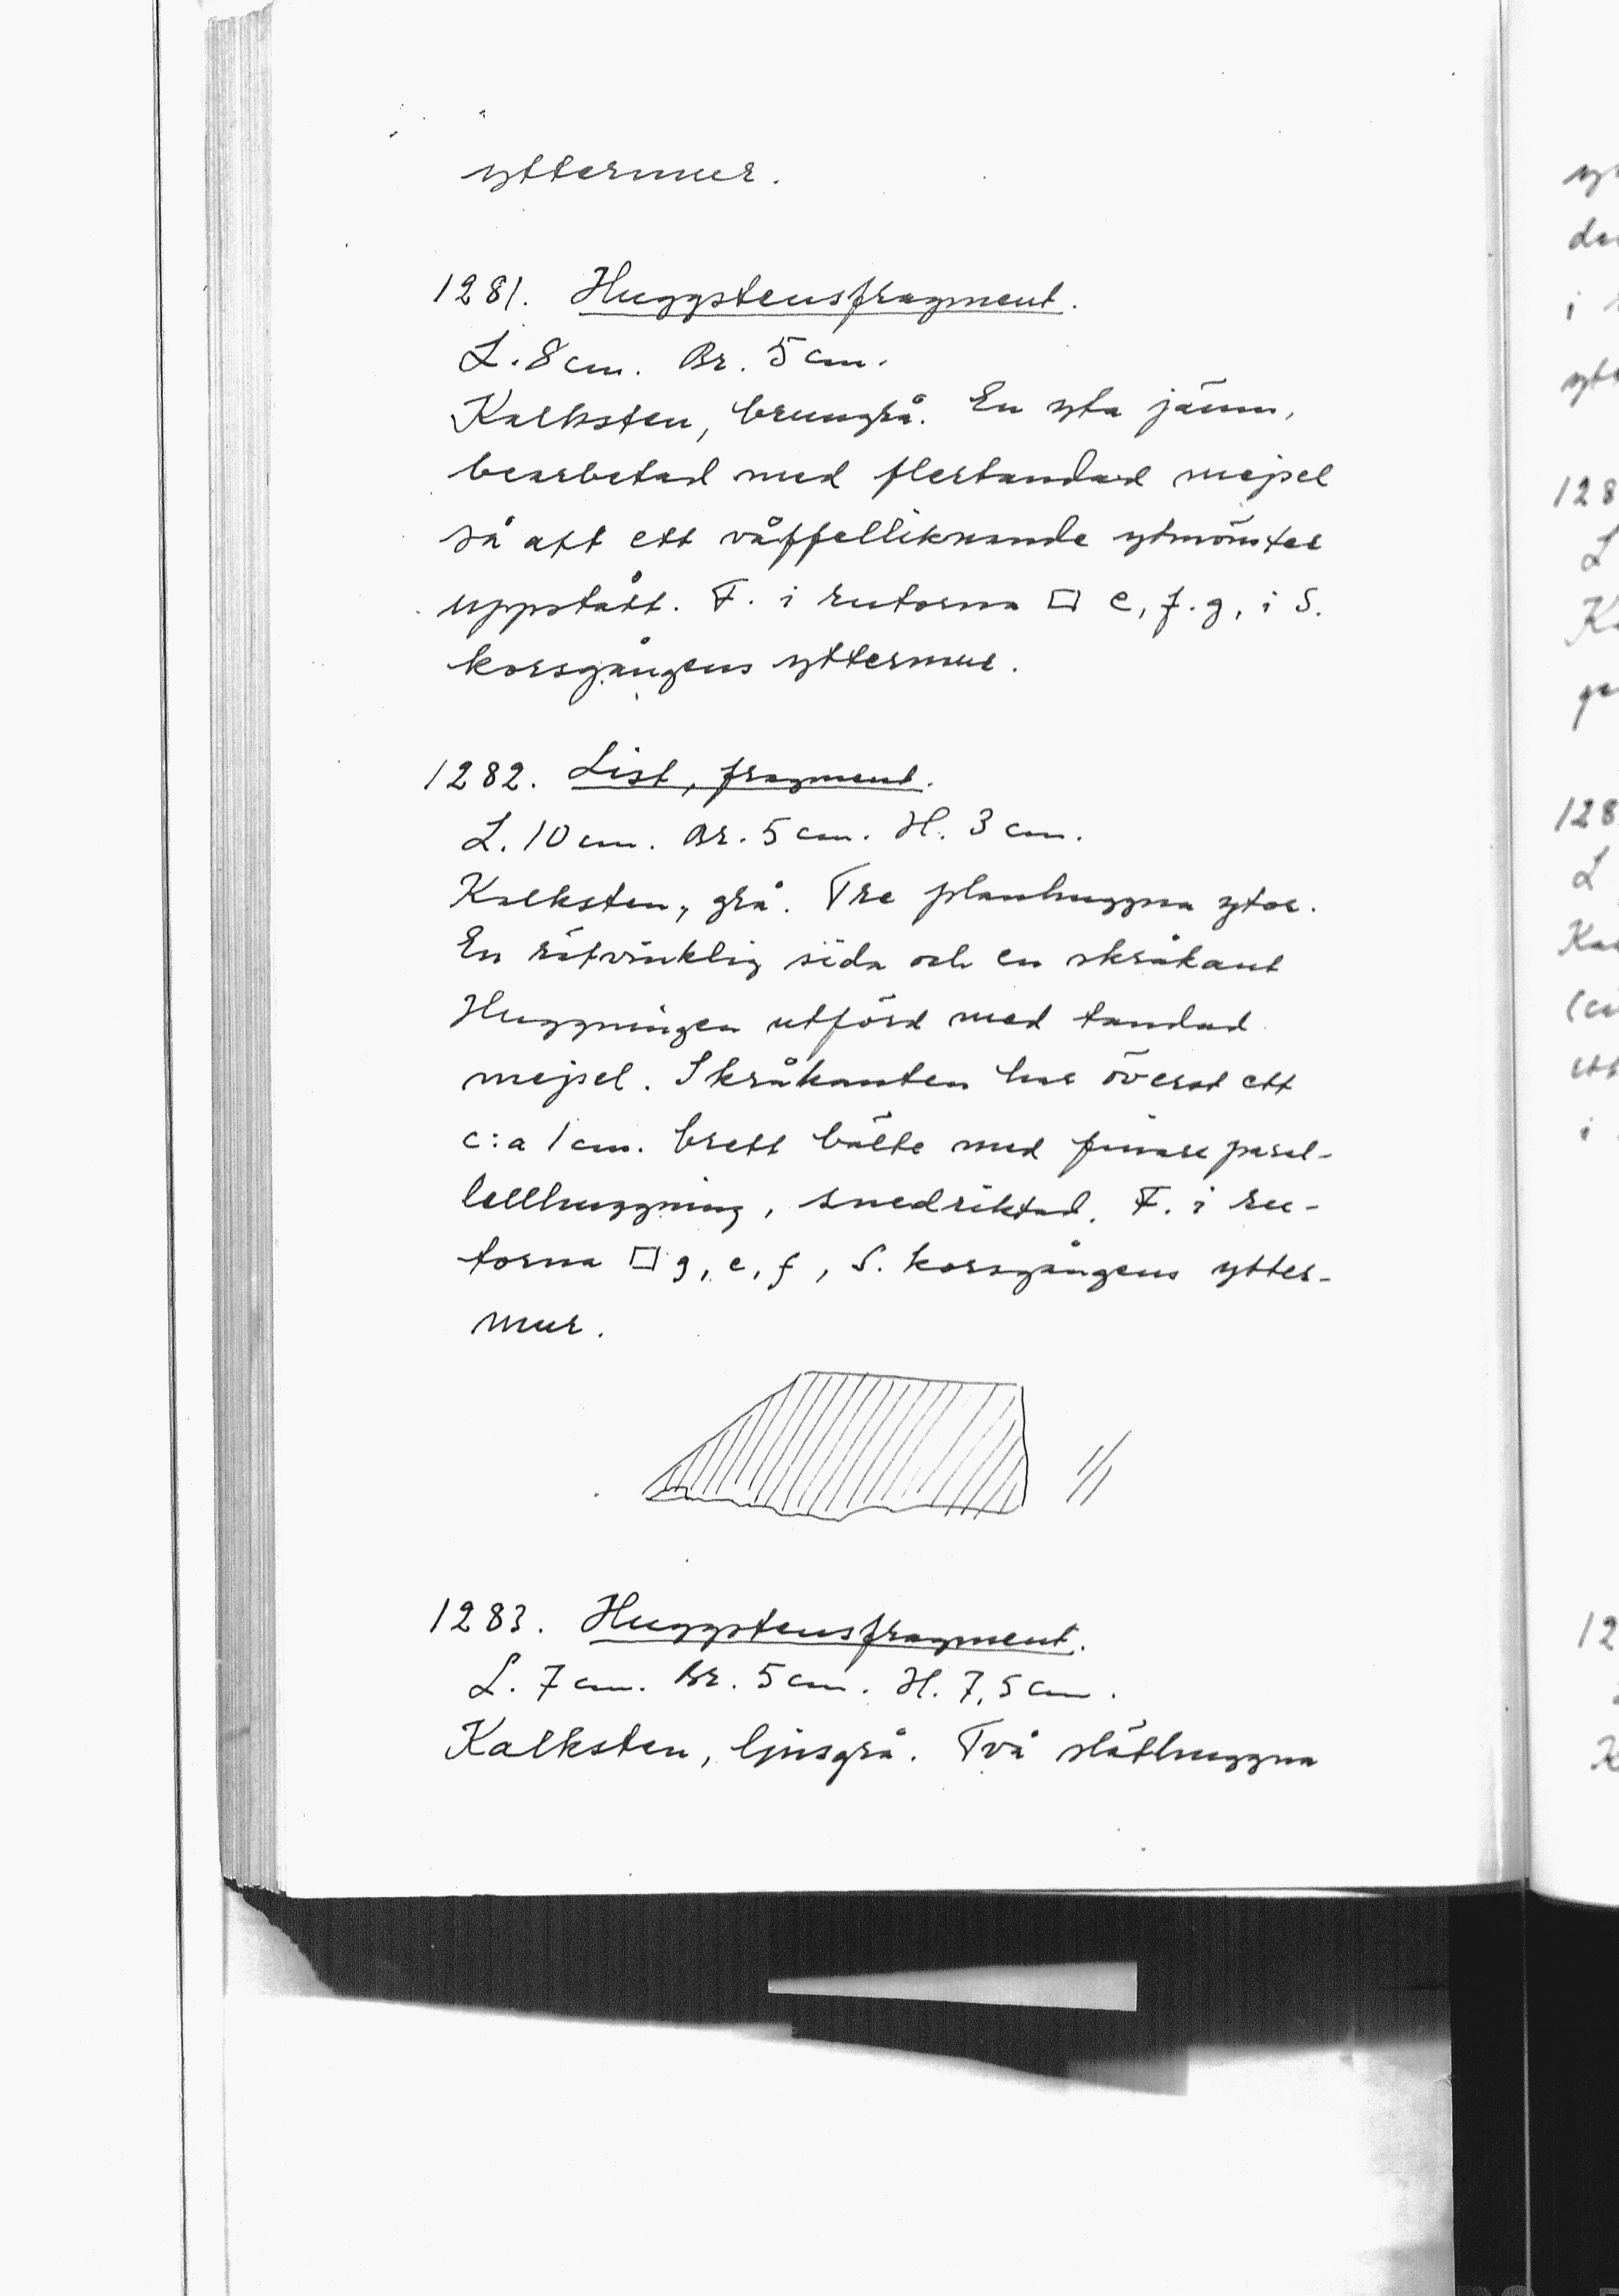 yttermur.
1281. Huggstensfragment.
L. 8 cm. Br. 5 cm.
Kalksten, brungrå. En yta jämn,
bearbetad med flertandad mejsel
så att ett våffelliknande ytmönster
uppstått. F. i rutorna □ e, f. g, i S.
korsgångens yttermur.
1282. List, fragment.
L. 10 cm. Br. 5 cm. H. 3 cm.
Kalksten, grå. Tre planhuggna ytor.
En rätvinklig sida och en skråkant
Huggningen utförd med tandad
mejsel. Skråkanten har överst ett
c:a 1 cm. brett bälte med finare paral-
lellhuggning, snedriktad. F. i ru-
torna □ g, e, f, S. korsgångens ytter-
mur.
1283. Huggstensfragment.
L. 7 cm. Br. 5 cm. H. 7,5 cm.
Kalksten, ljusgrå. Två släthuggna
128
L
128
L
12